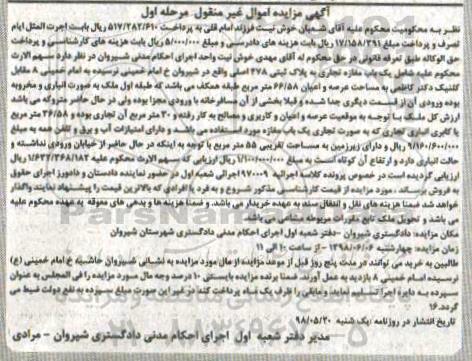 آگهی مزایده اموال غیر منقول مرحله اول
نظر به محکومیت محکوم علیه آقای شعبان خوش نیت فرزند امام قلی به پرداخت ۵۱۷/۲۸۲/۶۱۰ ریال بابت اجرت المثل ایام
تصرف و پرداخت مبلغ ۱۷/۱۵۸/۳۹۱ ریال بابت هزینه های دادرسی و مبلغ ۵/۰۰۰/۰۰۰ ریال بابت هزینه های کارشناسی و پرداخت
حق الوکاله طبق تعرفه قانونی در حق محکوم له آقای مهدی خوش نیت واحد اجرای احکام مدنی شیروان در نظر دارد سهم الارث
محکوم علیه شامل یک باب مغازه تجاری به پلاک ثبتی ۴۷۸ اصلی واقع در شیروان خ امام خمینی نرسیده به امام خمینی ۸ مقابل
کلینیک دکتر کاظمی به مساحت عرصه و اعیان ۶۶/۵۸ متر مربع طبقه همکف می باشد که طبقه اول ملک به صورت انباری و مخروبه
بوده ورودی آن از قسمت دیگری جدا شده و قبلا بخشی از آن مسافرخانه با ورودی مجزا بوده ولی در حال حاضر متروکه می باشد
ارزش کل ملک با توجه به موقعیت عرصه و اعیان و کاربری و مصالح به کار رفته و ۳۰ متر مربع آن تجاری بوده و ۳۶/۵۸ متر مربع
با کاربری انباری تجاری که به صورت تجاری یک باب مغازه مورد استفاده می باشد و دارای امتیازات آب و برق و تلفن همه به مبلغ
۹/۱۶۰/۶۰۰/۰۰۰ ریال و دارای زیرزمین به مساحت تقریبی ۵۵ متر مربع با توجه به اینکه در حال حاضر از خیابان ورودی نداشته و
حالت انباری دارد و ارتفاع آن کوتاه است به مبلغ ۱/۱۰۰/۰۰۰/۰۰۰ ریال ارزیابی که سهم الارث محکوم علیه ۱/۶۳۲/۳۶۸/۱۸۲ ریال
ارزیابی گردیده است در خصوص پرونده کلاسه اجرائیه ۹۷۰۰۰۹ اجرائی شعبه اول در حضور نماینده دادستان و دادورز اجرای حقوق
به فروش برساند. مورد مزایده از قیمت کارشناسی مذکور شروع و به فرد یا افرادی که بالاترین قیمت را پیشنهاد نمایند واگذار
خواهد شد ضمنا هزینه های نقل و انتقال سند به عهده خریدار می باشد. و ضمنا هزینه ها و بدهی های معوقه به عهده محکوم علیه
می باشد و تحویل ملک تابع مقررات مربوطه مستاجری می باشد.
مکان مزایده: دادگستری شیروان - دفتر شعبه اول اجرای احکام مدنی دادگستری شهرستان شیروان
زمان مزایده: چهارشنبه ۱۳۹۸/۰۶/۰۶ - از ساعت ۱۰ الی ۱۱
طالبین به خرید می توانند در مدت پنج روز قبل از موعد مزایده از مال مورد مزایده به نشانی شیروان حاشیه خ امام خمینی (ع)
نرسیده امام خمینی ۸ بازدید به عمل آورند ضمنا برنده مزایده بایستی ۱۰ درصد وجه مال مورد مزایده را فی المجلس به عنوان
سپرده به دایره اجرا تسلیم نماید و مابقی را ظرف یک ماه پرداخت کند در غیر این صورت مبلغ سپرده به نفع دولت ضبط می
گردد. ۱۶
تاریخ انتشار در روزنامه: یک شنبه ۹۸/۰۵/۲۰
مدیر دفتر شعبه اول اجرای احکام مدنی دادگستری شیروان - مرادی